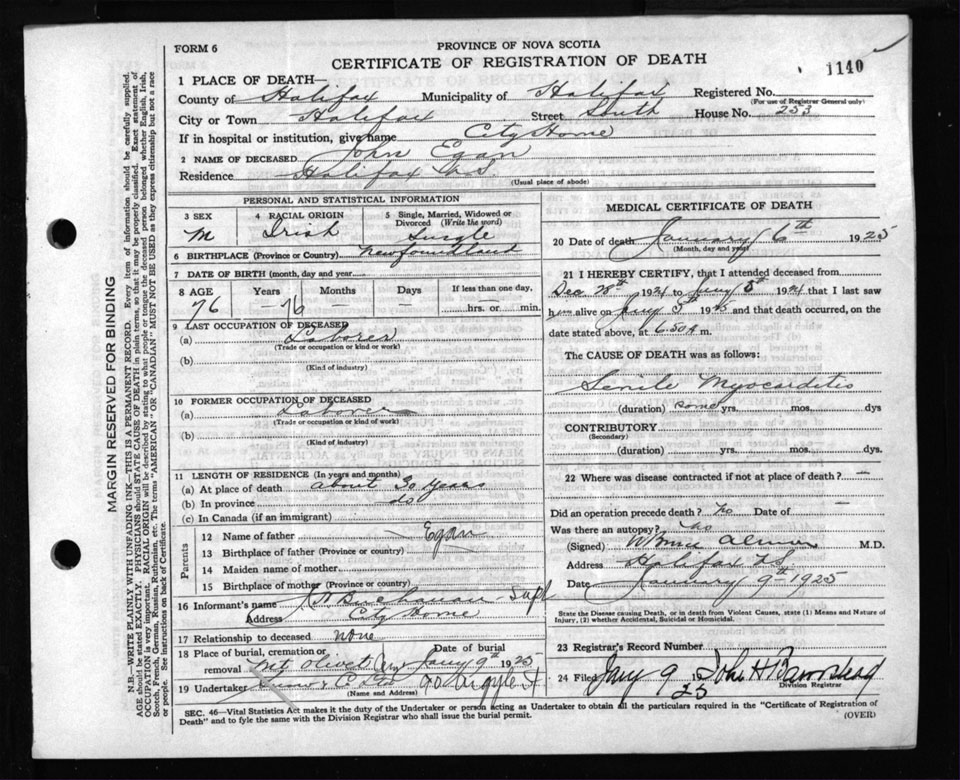 FORM 6
PROVINCE OF NOVA SCOTIA
CERTIFICATE OF REGISTRATION OF DEATH
1140
1 PLACE OF DEATH—
County of Halifax Municipality of Halifax Registered No.
(For use of Registrar General only)
City or Town Halifax Street South House No. 253
If in hospital or institution, give name City Home
2 NAME OF DECEASED John Egan
Residence Halifax N.S.
(Usual place of abode)
PERSONAL AND STATISTICAL INFORMATION
3 SEX
M
4 RACIAL ORIGIN
Irish
5 Single, Married, Widowed or Divorced (Write the word)
Single
6 BIRTHPLACE (Province or Country) Newfoundland
7 DATE OF BIRTH (month, day and year)
8 AGE Years Months Days If less than one day,
76 76 — — — hrs. or — min.
9 LAST OCCUPATION OF DECEASED
(a) Laborer
(Trade or occupation or kind or work)
(b)
(Kind of industry)
10 FORMER OCCUPATION OF DECEASED
(a) Laborer
(Trade or occupation or kind of work)
(b)
(Kind of industry)
11 LENGTH OF RESIDENCE (In years and months)
(a) At place of death about 30 years
(b) In province do
(c) In Canada (if an immigrant)
Parents
12 Name of father Egan
13 Birthplace of father (Province or country)
14 Maiden name of mother
15 Birthplace of mother (Province or Country)
16 Informant's name Buchanan Supt
Address City Home
17 Relationship to deceased none
18 Place of burial, cremation or removal Mt Olivet Cem Date of burial Jany 9th 1925
19 Undertaker Snow & Co Ltd 90 Argyle St
(Name and Address)
MEDICAL CERTIFICATE OF DEATH
20 Date of death January 6th 1925
(Month, day and year)
21 I HEREBY CERTIFY, that I attended deceased from
Dec 28th 1924 to Jany 5th 1924 that I last saw
him alive on Jany 5th 1925 and that death occurred, on the
date stated above, at 6.50 A m.
The CAUSE OF DEATH was as follows:
Senile Myocarditis
(duration) some yrs. mos. dys
CONTRIBUTORY
(Secondary)
(duration) yrs. mos. dys.
22 Where was disease contracted if not at place of death? —
Did an operation precede death? No Date of —
Was there an autopsy? No
(Signed) W Bruce Almon M.D.
Address Halifax N.S.
Date January 9th 1925
State the Disease causing Death, or in death from Violent Causes, state (1) Means and Nature of Injury, (2) whether Accidental, Suicidal or Homicidal.
23 Registrar's Record Number
24 Filed Jany 9 1925 John H Barnstead
Division Registrar
SEC. 46—Vital Statistics Act makes it the duty of the Undertaker or person acting as Undertaker to obtain all the particulars required in the "Certificate of Registration of
Death" and to fyle the same with the Division Registrar who shall issue the burial permit.
(OVER)
MARGIN RESERVED FOR BINDING
N.B.—WRITE PLAINLY WITH UNFADING INK—THIS IS A PERMANENT RECORD. Every item of information should be carefully supplied.
AGE should be stated EXACTLY. PHYSICIANS should STATE CAUSE OF DEATH in plain terms, so that it may be properly classified. Exact statement of
OCCUPATION is very important. RACIAL ORIGIN will be described by stating to what people or tongue the deceased person belonged whether English, Irish,
Scotch, French, German, Russian, Ruthenian, etc. The terms "AMERICAN" OR "CANADIAN" MUST NOT BE USED as they express citizenship but not a race
or people. See instructions on back of Certificate.